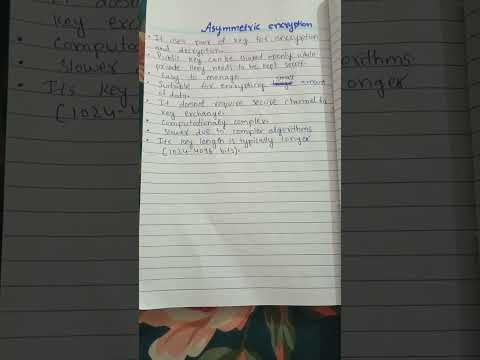 Asymmetric encryption
• It uses pair of key for encryption
and decryption.
• Public key can be shared openly while
private key needs to be kept secret.
• Easy to manage.
• Suitable for encrypting small amount
of data.
• It doesnot require secure channel for
key exchange.
• Computationally complex
• slower due to complex algorithms
• Its key length is typically longer
(1024-4096 bits).